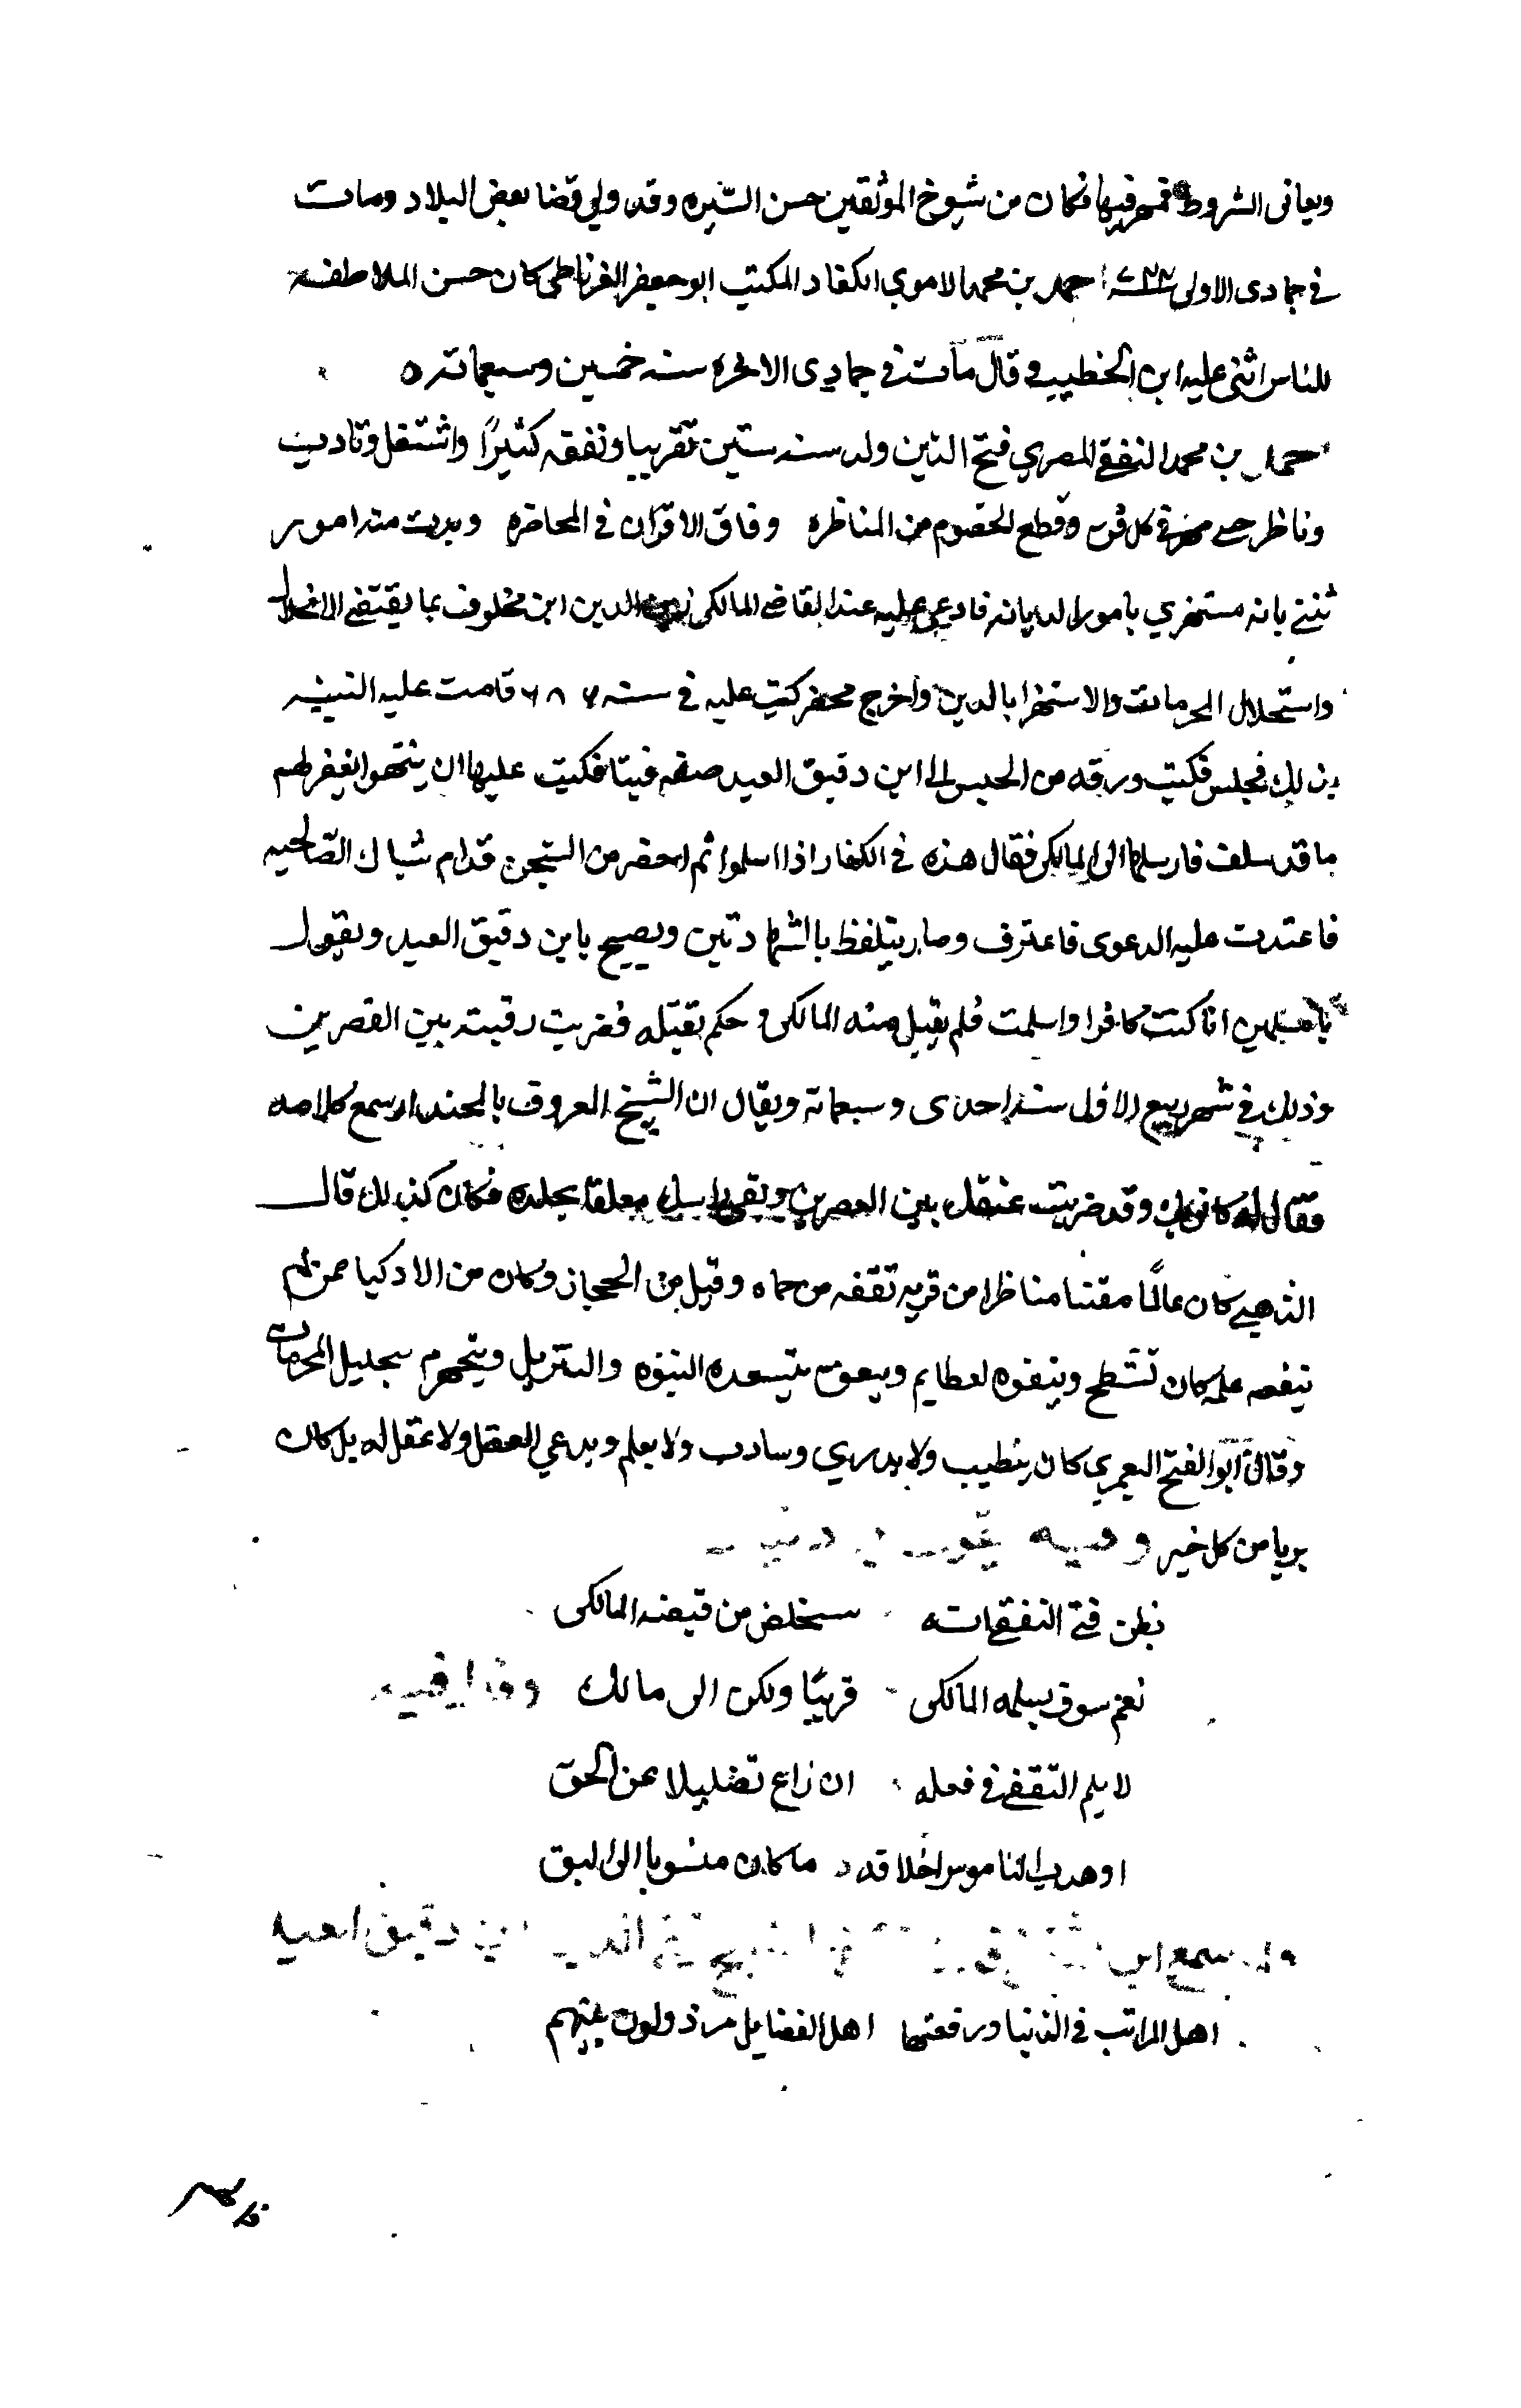 ويعانى الشروط فمهر فيها فكان من شيوخ الموثقين حسن السيره وقد ولي قضا بعض البلاد ومات
في جمادى الاولى احمد بن محمد الاموي المكتب ابو جعفر الغرناطى كان حسن الملاطفه
للناس اثنى عليه ابن الخطيب وقال مات في جمادى الاخره سنه خمسين وسبعمائه ه
احمد بن محمد البققي المصري فتح الدين ولد سنه ستين تقريبا وتفقه كثيرًا واشتغل وتادب
وناظر حتى مهر في كل فن وقطع الخصوم من المناظره وفاق الاقران في المحاضره وبدت منه امور
تنبئ بانه مستهزي بامور الديانه فادعى عليه عند القاضي المالكى زين الدين ابن مخلوف بما يقتضي الانحلال
واستحلال المحرمات والاستهزا بالدين واخرج محضر كتب عليه في سنه ٦٨٦ قامت عليه البينه
بذلك فحبس فكتب ورقه من الحبس الى ابن دقيق العيد صفه فتيا فكتب عليها ان ينتهوا يغفر لهم
ما قد سلف فارسلها الى المالكى فقال هذه في الكفار اذا اسلموا ثم احضر من السجن قدام شباك الصالحيه
فاعتدت عليه الدعوى فاعترف وصار يتلفظ بالشهادتين ويصيح يابن دقيق العيد ويقول
يا مسلمين انا كنت كافرا واسلمت فلم يقبل منه المالكى وحكم بقتله فضربت رقبته بين القصرين
وذلك في شهر ربيع الاول سنه احدى وسبعمائة ويقال ان الشيخ المعروف سمع كلامه
فقال له كاني بك وقد ضربت عنقك بين القصرين وبقي راسك معلقا بجلده فكان كذلك قال
الذهبي كان عالمًا مفننا مناظرا من قريه من حماه وقيل من الحجاز وكان من الاذكيا ممن لم
ينفعه علمه كان يشطح ويتفوه لعظايم النبوه والتنزيل بتحليل المحرمات
وقال ابو الفتح اليعمرى كان يتطبب ولا يدري ولا يعلم ويدعي العقل ولا عقل له بل كان
بريا من كل خير وفيه يقول بن دنيال
يظن فتى البققي انه سيخلص من قبضه المالكى
نعم سوف يسلمه المالكى قريبًا ولكن الى مالك وقال فيه
لا يلم البققي في فعله ان زاغ تضليلا عن الحق
او هذب الناموس اخلاقه ما كان منسوبا الى البق
ولما سمع تقي الدين ابن دقيق العيد
اهل المراتب في الدنيا ورفعتها اهل الفضايل مرذولون بينهم